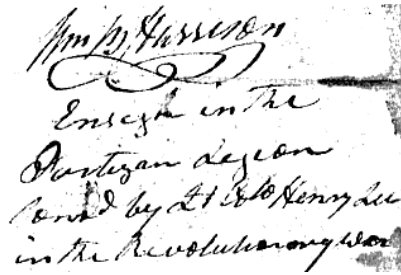 Wm B. Harrison
Ensign in the
Partizan Legion
Comd by Lt Colo Henry Lee
in the Revolutionary War